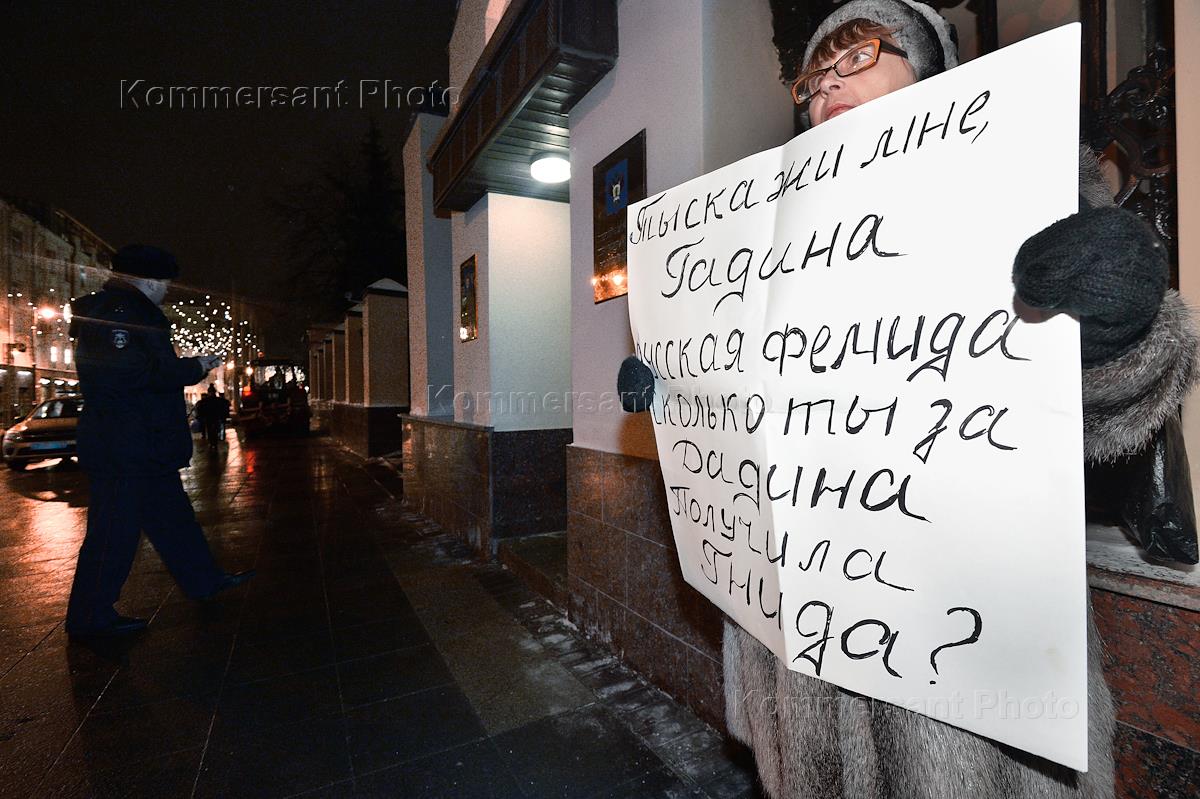 Kommersant Photo
Ты скажи мне,
Гадина
русская фемида
сколько ты за
Дадина
Получила
Гнида?
Kommersant Photo
Kommersant Photo